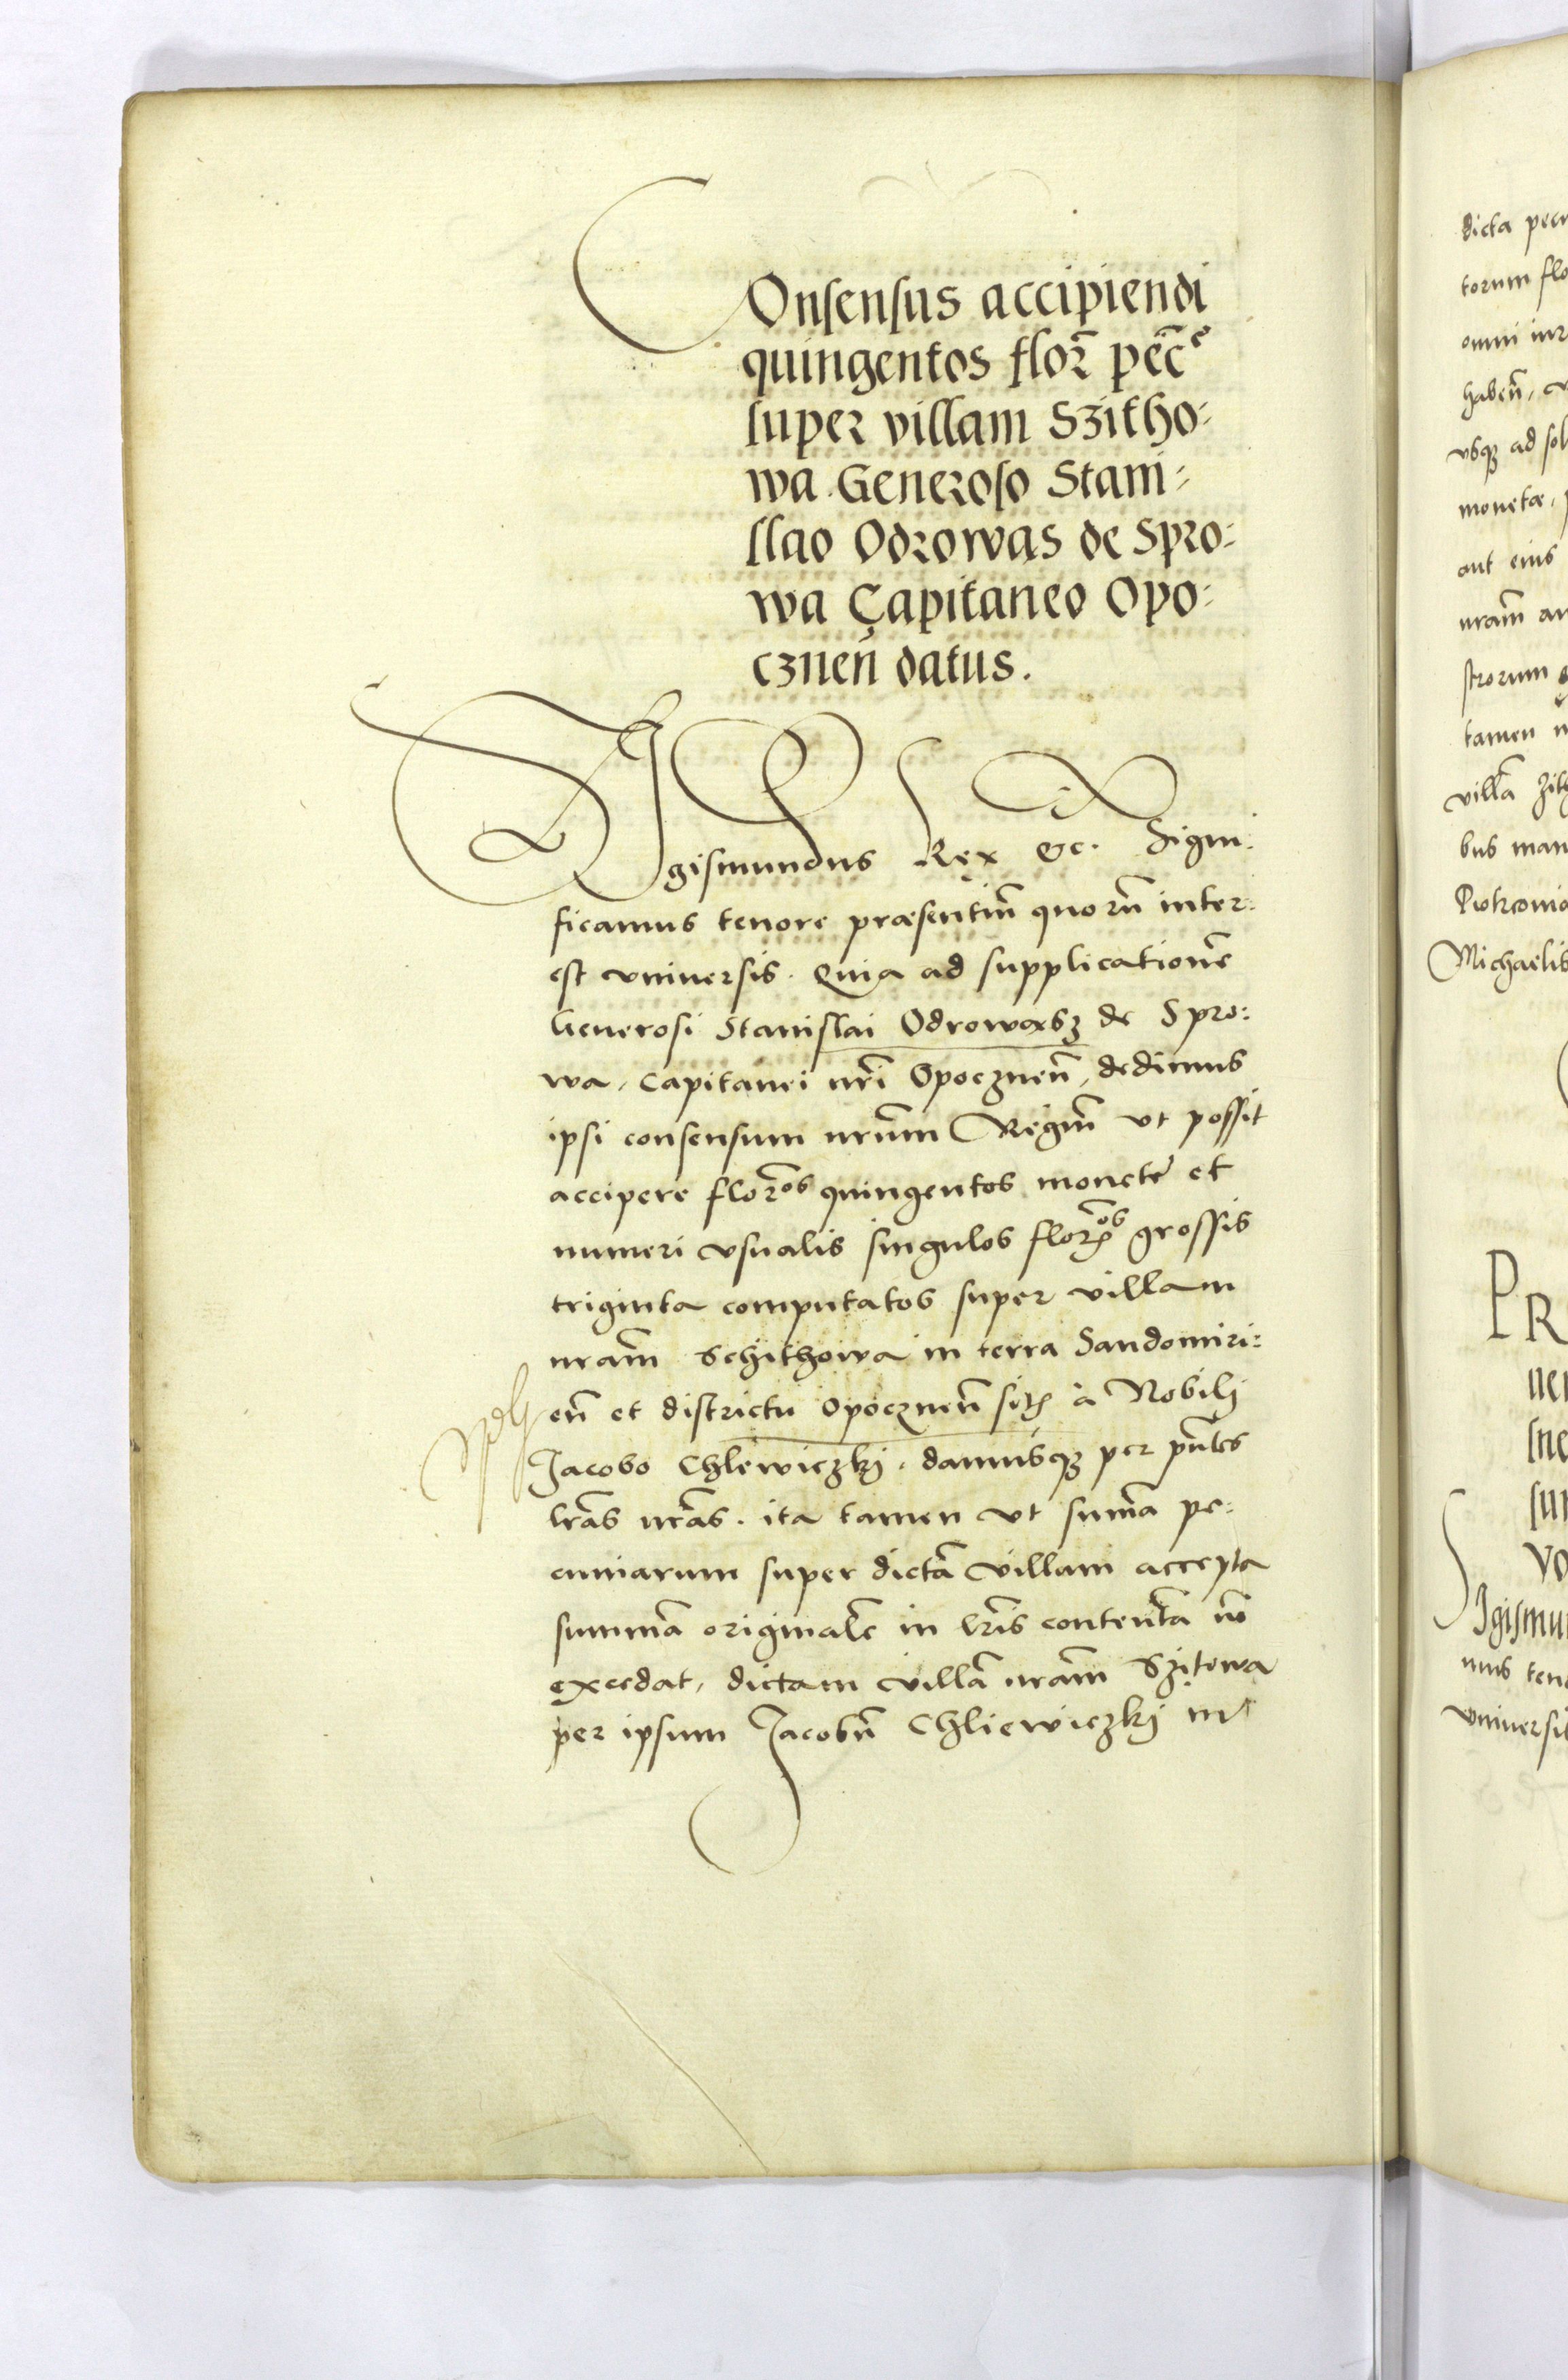 COnsensus accipiendi
quingentos florꝛ̃ pec̃e
super villam Szitho:
wa Generoso Stani:
slao Odrowąs de Spro:
wa Capitaneo Opo:
cznen̄ datus.
SIgismundus Rex &c. Signi:
ficamus tenore præsentiū quorū inter:
est vniuersis. Quia ad supplicationē
Generosi Stanislai Odrowąsz de Spro:
wa, Capitanei nr̄i Opocznen̄, dedimus
ipsi consensum nrūm Regiūm vt possit
accipere florenos quingentos monetę et
numeri vsualis singulos florenos grossis
triginta computatos super villam
nrām Schithowa in terra Sandomiri:
en̄ et districtu Opocznen̄ sitꝭ à Nobilj
Jacobo Chlewiczkj. damusqꝫ per pn̄tes
lrās nrās. ita tamen vt sum̄a pe:
cuniarum super dictā villam accepta
summā originalē in lrīs contentā nō
excedat, dictam villā nrām Szitowa
per ipsum Jacobū Chliewiczkj in
dicta
torum
omni
haben̄,
vsqꝫ ad
monetæ,
aut eius
nrām
strorum
tamen
villā
bus
Michaelis
PR
vniuersis